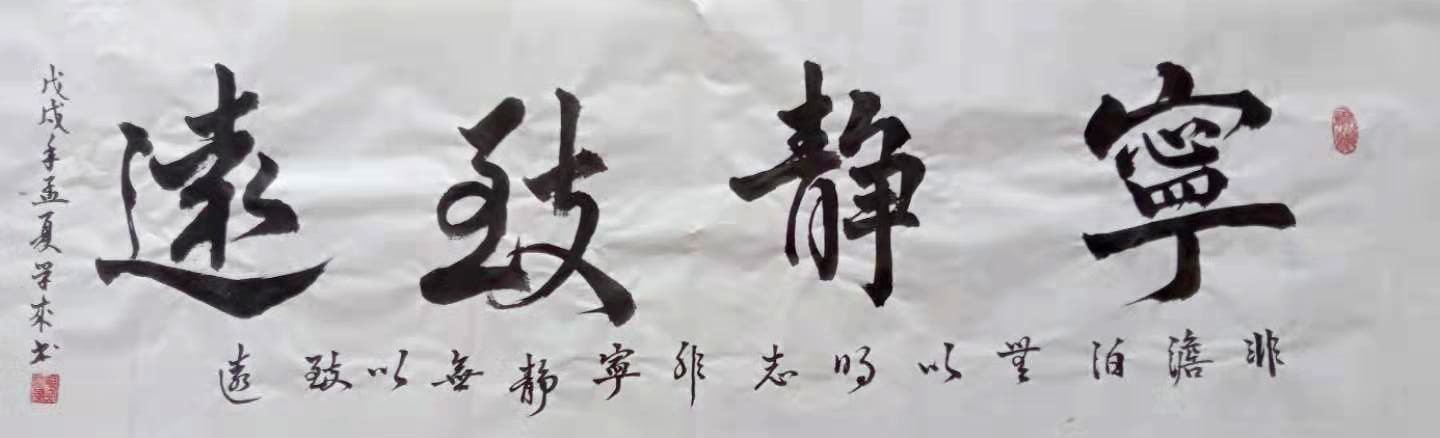 寧静致遠
非澹泊無以明志非寧静無以致遠
戊戌年孟夏学來书